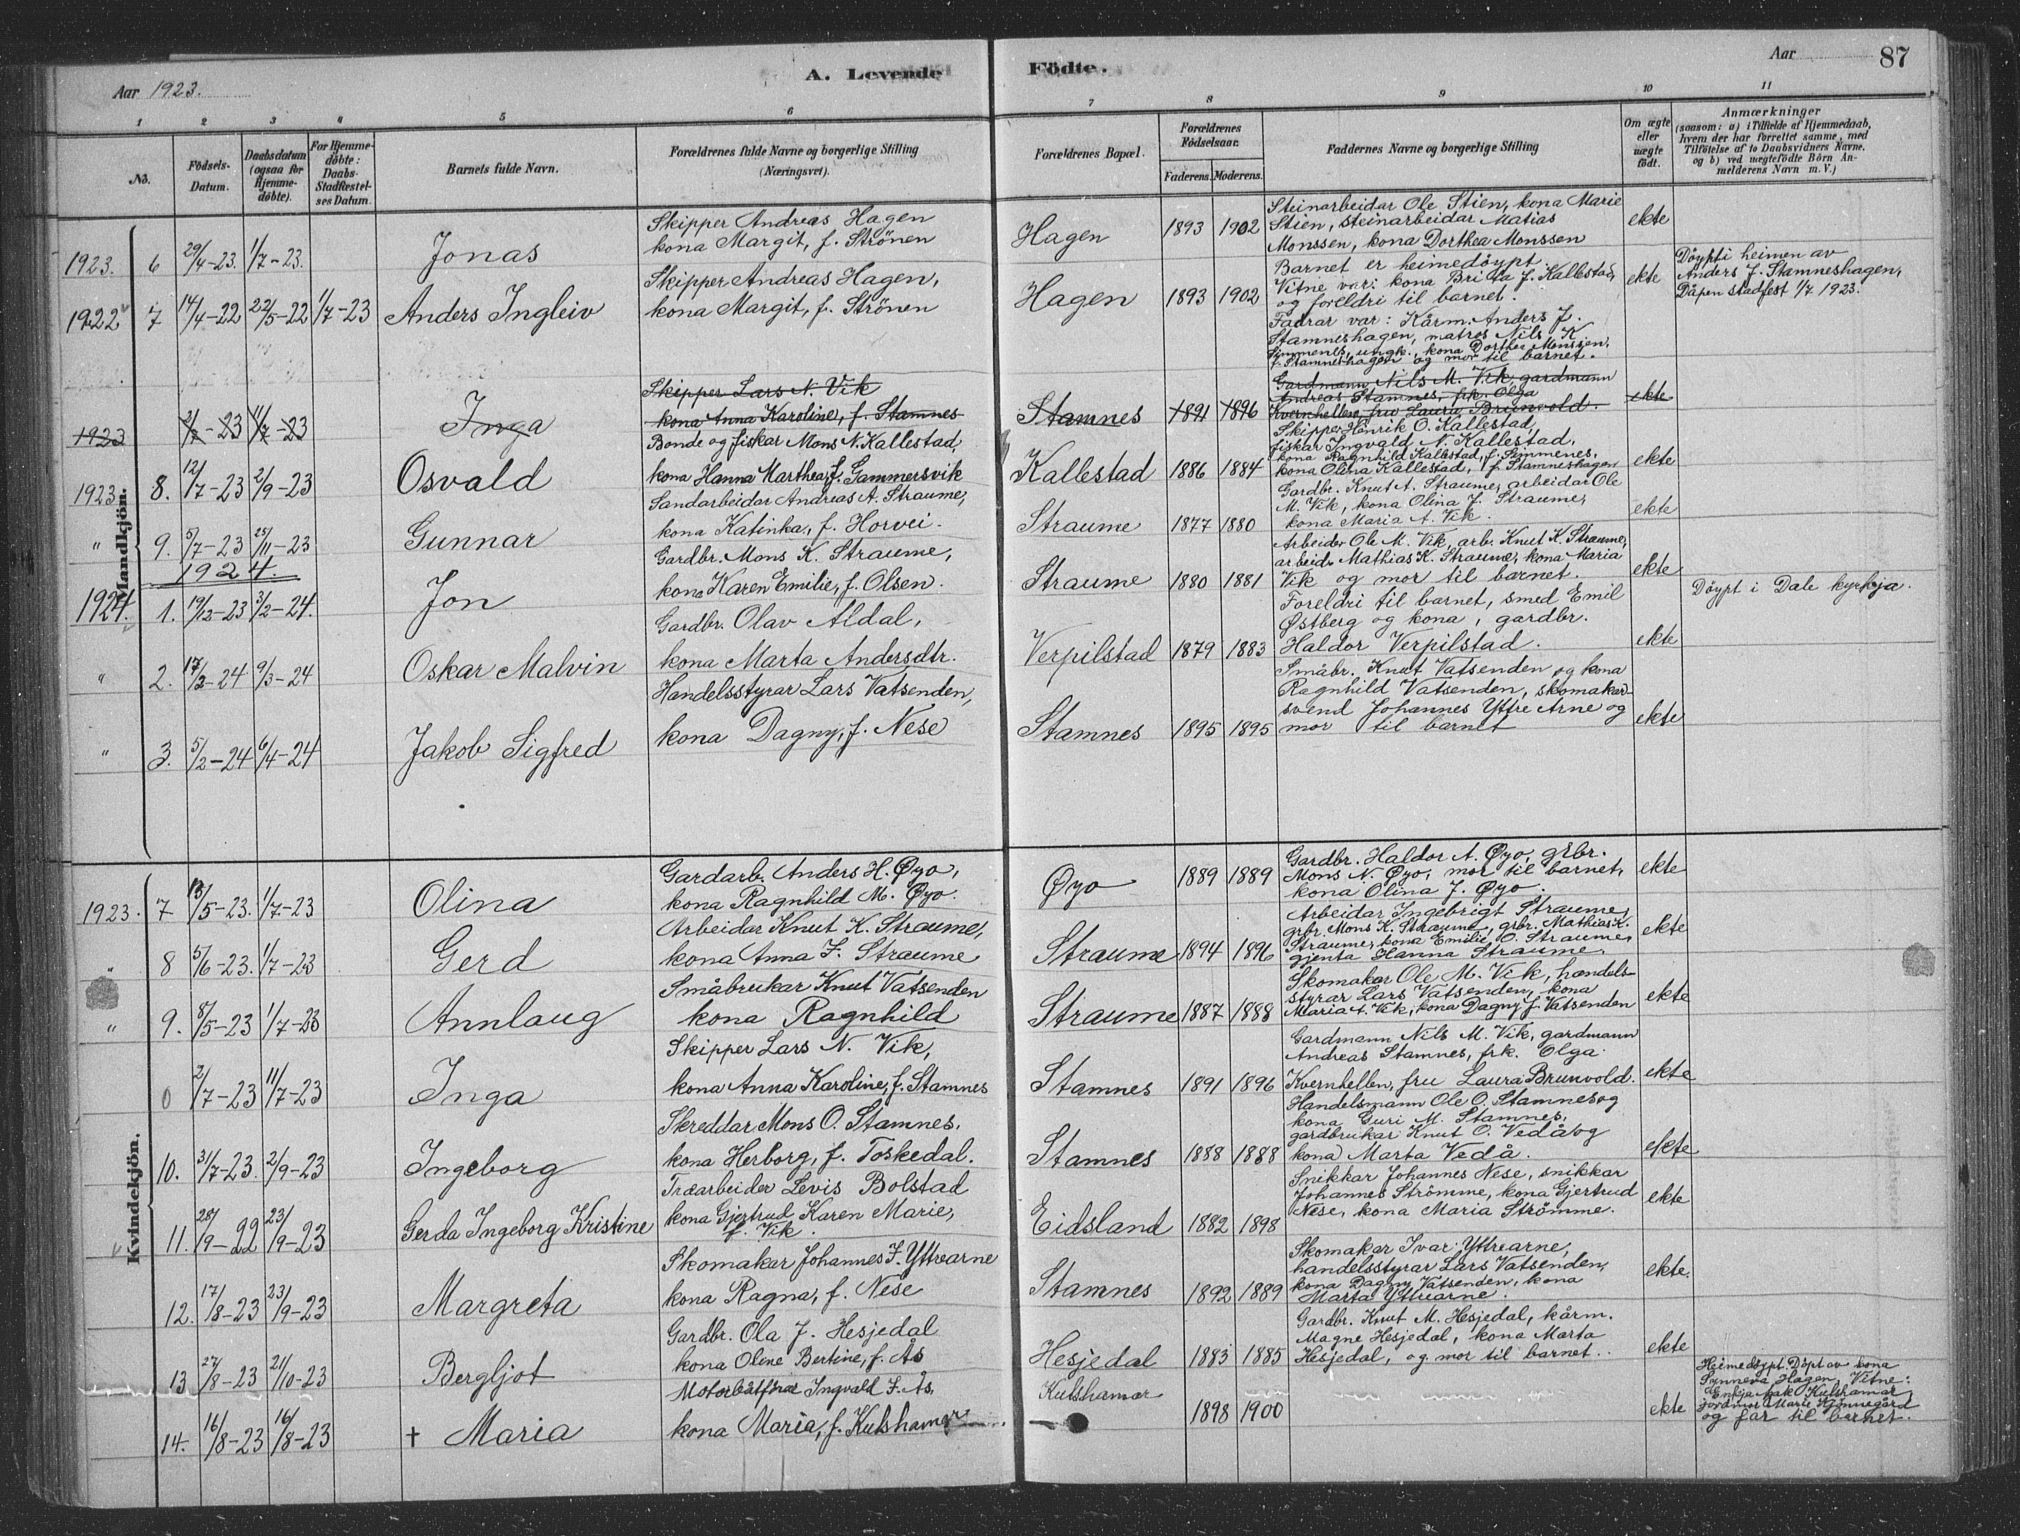 Aar 1923.
A. Levende
Födte.
Aar
87
1 2 3 4 5 6 7 8 9 10 11
No.
Födsels-Datum.
Daabsdatum (ogsaa for Hjemmedöbte).
For Hjemmedöbte: Daabs-Stadfæstelses Datum.
Barnets fulde Navn.
Forældrenes fulde Navne og borgerlige Stilling (Næringsvei).
Forældrenes Bopæl.
Forældrenes Födselsaar.
Faderens. Moderens.
Faddernes Navne og borgerlige Stilling
Om ægte eller uægte födt.
Anmærkninger
(saasom: a) i Tilfælde af Hjemmedaab, hvem der har forrettet samme, med Tilföielse af to Daabsvidners Navne, og b) ved uægtefödte Börn Anmelderens Navn m. V.)
Mandkjön.
1923. 6 29/4-23. 1/7-23. Jonas
Skipper Andreas Hagen
kona Margit, f. Strönen
Hagen 1893 1902
Steinarbeidar Ole Stien, kona Marie
Stien, steinarbeidar Matias
Monssen, kona Dorthea Monssen
ekte
1922 7 14/4-22 22/5-22 1/7-23 Anders Ingleiv
Skipper Andreas Hagen,
kona Margit, f. Strönen
Hagen 1893 1902
Barnet er heimedöypt.
Vitne var: kona Brita J. Kallestad,
og foreldri til barnet.
Fadrar var: Kårm. Anders J.
Stamneshagen, matros Nils K.
Simmenes, ungk., kona Dorthea Monssen,
f. Stamneshagen og mor til barnet.
ekte
Döypt i heimen av
Anders J. Stamneshagen,
Dåpen stadfest 1/7 1923.
1923 2/7-23 11/7-23 Inga
Skipper Lars N. Vik
kona Anna Karoline, f. Stamnes
Stamnes 1891 1896
Gardmann Nils M. Vik, gardmann
Andreas Stamnes, frk. Olga
Kvernhellen, fru Laura Brunvold.
ekte
1923. 8. 12/7-23 2/9-23 Osvald
Bonde og fiskar Mons N. Kallestad,
kona Hanna Marthea, f. Gammersvik
Kallestad 1886 1884
Skipper Henrik O. Kallestad,
fiskar Ingvald N. Kallestad,
kona Ragnhild Kallestad, f. Simmenes,
kona Olina Kallestad, f. Stamneshagen
ekte
" 9. 5/7-23 25/11-23 Gunnar
Sandarbeidar Andreas A. Straume,
kona Katinka, f. Horvei.
Straume 1877 1880
Gardbr. Knut A. Straume, arbeidar Ole
M. Vik, kona Olina J. Straume,
kona Maria A. Vik.
ekte
1924.
1924. 1. 19/12-23 3/2-24. Jon
Gardbr. Mons K. Straume,
kona Karen Emilie, f. Olsen.
Straume 1880 1881
Arbeider Ole M. Vik, arb. Knut K. Straume,
arbeide Mathias K. Straume, kona Maria
Vik og mor til barnet.
ekte
" 2. 17/2-24 9/3-24 Oskar Malvin
Gardbr. Olav Aldal,
kona Marta Andersdtr.
Verpilstad 1879 1883
Foreldri til barnet, smed Emil
Østberg og kona, gardbr.
Haldor Verpilstad.
ekte
Döypt i Dale kyrkja.
" 3. 5/2-24 6/4-24 Jakob Sigfred
Handelsstyrar Lars Vatsenden,
kona Dagny, f. Nese
Stamnes 1895 1895
Småbr. Knut Vatsenden og kona
Ragnhild Vatsenden, skomakar-
svend Johannes Yttre Arne og
mor til barnet
ekte
Kvindekjön.
1923. 7 13/5-23. 1/7-23 Olina
Gardarb. Anders H. Øyo,
kona Ragnhild M. Øyo.
Øyo 1889 1889
Gardbr. Haldor A. Øyo, grbr.
Mons N. Øyo, mor til barnet,
kona Olina J. Øyo.
ekte
" 8 5/6-23. 1/7-23 Gerd
Arbeidar Knut K. Straume,
kona Anna J. Straume
Straume 1894 1896
Arbeidar Ingebrigt Straume,
grbr. Mons K. Straume, grbr. Mathias K.
Straume, kona Emilie O. Straume,
gjenta Hanna Straume.
ekte
" 9. 8/5-23 1/7-23 Annlaug
Småbrukar Knut Vatsenden
kona Ragnhild
Straume 1887 1888
Skomakar Ole M. Vik, handels-
styrar Lars Vatsenden, kona
Maria A. Vik, kona Dagny f. Vatsenden
ekte
0 2/7-23 11/7-23 Inga
Skipper Lars N. Vik,
kona Anna Karoline, f. Stamnes
Stamnes 1891 1896
Gardmann Nils M. Vik, gardmann
Andreas Stamnes, frk. Olga
Kvernhellen, fru Laura Brunvold.
ekte
10. 3/7-23. 2/9-23 Ingeborg
Skreddar Mons O. Stamnes,
kona Herborg, f. Toskedal.
Stamnes 1888 1888
Handelsmann Ole O. Stamnes og
kona Guri M. Stamnes,
gardbrukar Knut O. Vedå og
kona Marta Vedå.
ekte
11. 28/9-22 23/9-23 Gerda Ingeborg Kristine
Træarbeider Levis Bolstad
kona Gjertrud Karen Marie,
f. Vik.
Eidsland 1882 1898
Snikkar Johannes Nese, snikkar
Johannes Strömme, kona Gjertrud
Nese, kona Maria Strömme.
ekte
12. 17/8-23 23/9-23 Margreta
Skomakar Johannes J. Yttrearne
kona Ragna, f. Nese
Stamnes 1892 1889
Skomakar Ivar Yttrearne,
handelsstyrar Lars Vatsenden,
kona Dagny Vatsenden, kona
Marta Yttrearne.
ekte.
13 27/8-23 21/10-23 Bergljot
Gardbr. Ola J. Hesjedal
kona Oline Bertine, f. Ås
Hesjedal 1883 1885
Gardbr. Knut M. Hesjedal, kårm.
Magne Hesjedal, kona Marta
Hesjedal, og mor til barnet.
ekte
14. 16/8-23 16/8-23 † Maria
Motorbåtförar Ingvald J. Ås,
kona Maria, f. Kulshamar
Kulshamar 1898 1900
ekte
Heimedöypt. Döpt av kona
Synneva Hagen. Vitne:
Kulshamar,
jordmor Marte
og far til barnet.